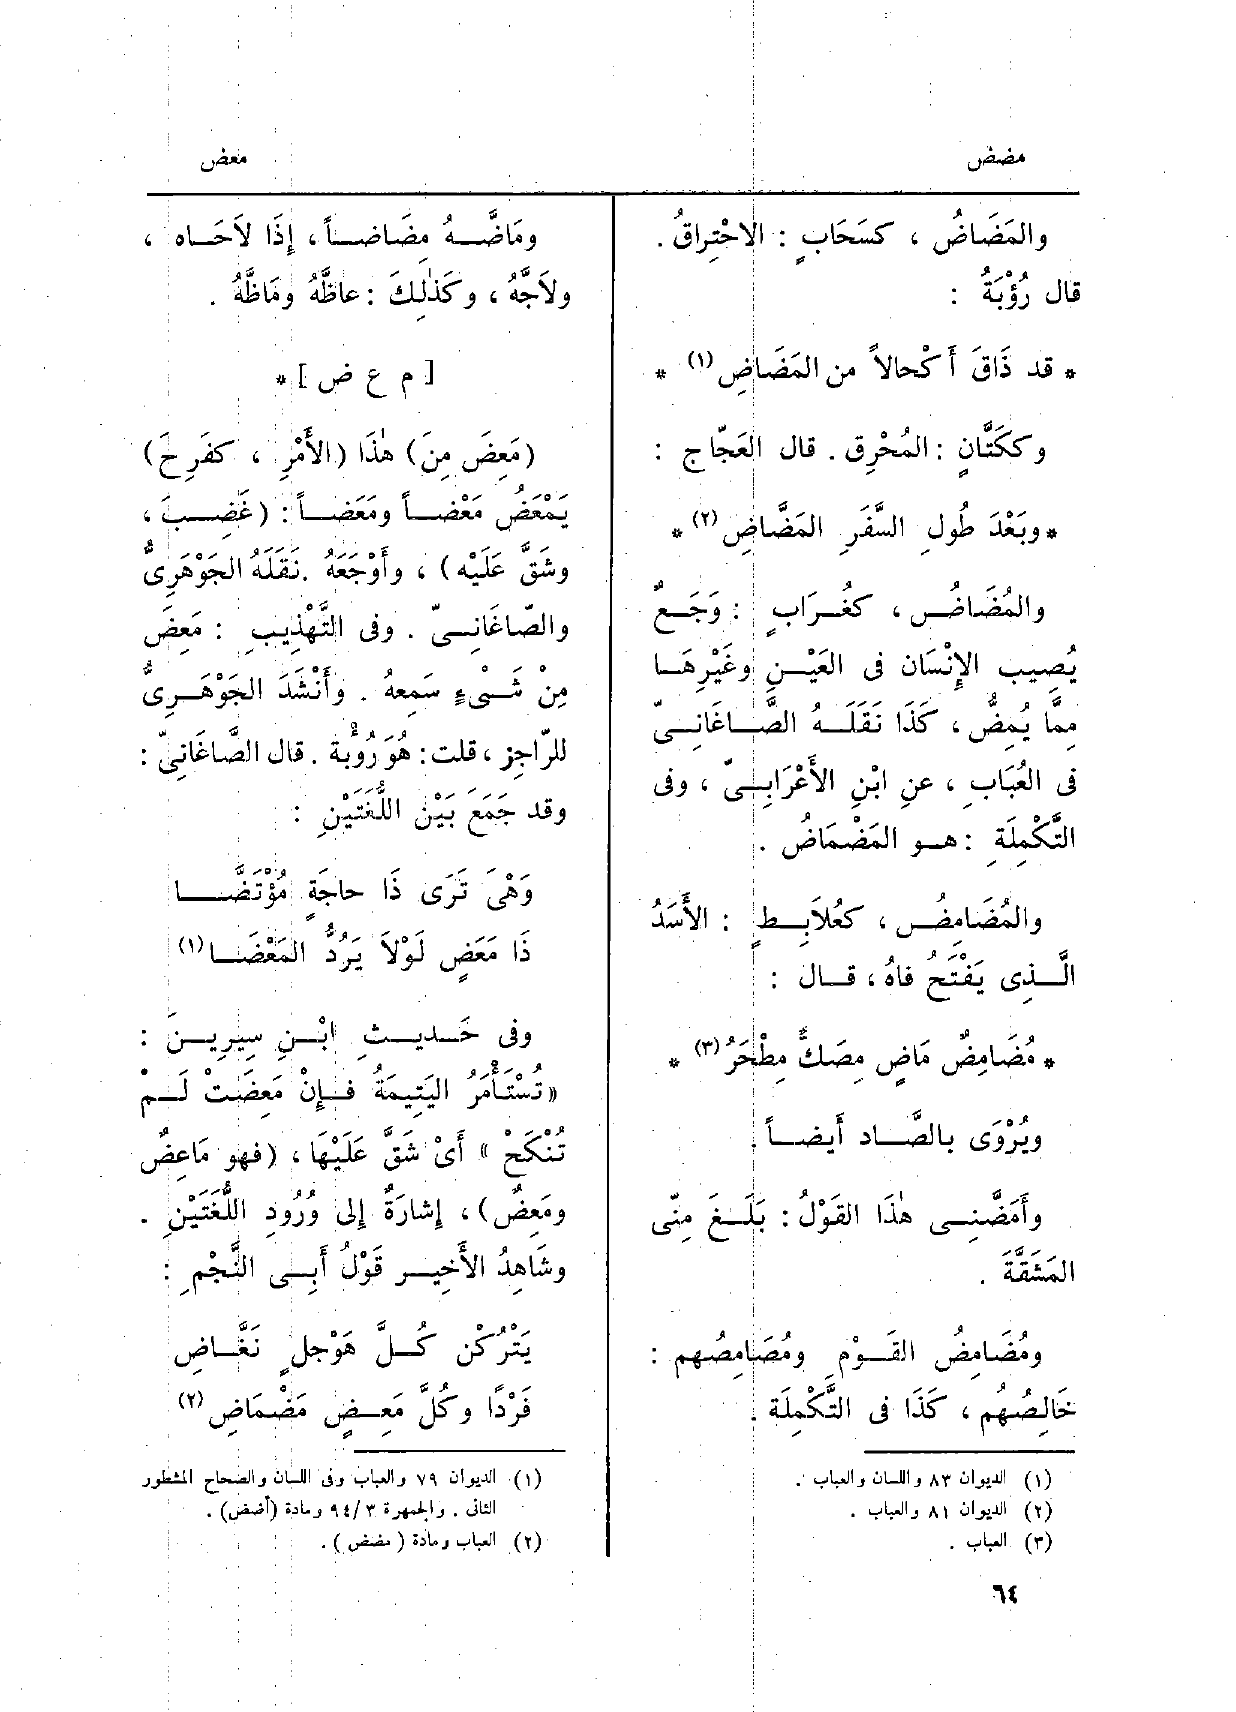 مضض
معض
والمَضَاضُ ، كسَحَابٍ : الاحْتِراقُ .
قال رُؤْبَةُ :
* قد ذَاقَ أَكْحالاً من المَضَاضِ (١) *
وككَتَّانٍ : المُحْرِق . قال العَجّاج :
* وبَعْدَ طُولِ السَّفَرِ المَضَّاضِ (٢) *
والمُضَاضُ ، كغُرَابٍ : وَجَعٌ
يُصِيب الإِنْسَان فى العَيْنِ وغَيْرِهَا
مِمَّا يُمِضُّ ، كَذَا نَقَلَهُ الصَّاغَانِىّ
فى العُبَابِ ، عنِ ابْنِ الأَعْرَابِىّ ، وفى
التَّكْمِلَةِ : هو المَضْمَاضُ .
والمُضَامِضُ ، كعُلاَبِطٍ : الأَسَدُ
الَّذِى يَفْتَح فاهُ ، قال :
* مُضَامِضٌ مَاضٍ مِصَكٌّ مِطْحَرُ (٣) *
ويُرْوَى بالصَّاد أَيضاً .
وأَمَضَّنِى هٰذَا القَوْلُ : بَلَغَ مِنّى
المَشَقَّةَ .
ومُضَامِضُ القَوْمِ ومُصَامِصُهم :
خَالِصُهُم ، كَذَا فى التَّكْمِلَة .
(١) الديوان ٨٣ واللسان والعباب .
(٢) الديوان ٨١ والعباب .
(٣) العباب .
ومَاضَّهُ مِضَاضاً ، إِذَا لاَحَاه ،
ولاَجَّهُ ، وكَذٰلِكَ : عاظَّهُ ومَاظَّهُ .
[ م ع ض ] *
(مَعِضَ مِنَ) هٰذَا (الأَمْرِ ، كفَرِحَ)
يَمْعَضُ مَعْضاً ومَعَضاً : (غَضِبَ ،
وشَقَّ عَلَيْه) ، وأَوْجَعَهُ . نَقَلَهُ الجَوْهَرِىُّ
والصّاغَانِىّ . وفى التَّهْذِيبِ : مَعِضَ
مِنْ شَىْءٍ سَمِعهُ . وأَنْشَدَ الجَوْهَرِىُّ
للرّاجِزِ ، قلت : هُوَ رُؤْبة . قال الصَّاغَانِىّ :
وقد جَمَعَ بَيْن اللُّغَتَيْنِ :
وَهْىَ تَرَى ذَا حاجَةٍ مُؤْتَضَّا
ذَا مَعَضٍ لَوْلاَ يَرُدُّ المَعْضَا (١)
وفى حَدِيثِ ابْنِ سِيرِينَ :
« تُسْتَأْمَرُ اليَتِيمَةُ فإِنْ مَعِضَتْ لَمْ
تُنْكَحْ » أَىْ شَقَّ عَلَيْهَا ، (فهو مَاعِضٌ
ومَعِضٌ) ، إِشارَةٌ إِلى وُرُودِ اللُّغَتَيْنِ .
وشَاهِدُ الأَخِيرِ قَوْلُ أَبِى النَّجْمِ :
يَتْرُكْن كُلَّ هَوْجلٍ نَغَّاضِ
فَرْدًا وكُلَّ مَعِضٍ مَضْمَاضِ (٢)
(١) الديوان ٧٩ والعباب وفى اللسان والصحاح المشطور
الثانى . والجمهرة ٩٤/٣ ومادة (أضض) .
(٢) العباب ومادة ( مضض ) .
٦٤